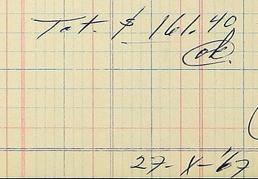 Tot. $ 161.40
ok.
27-X-67